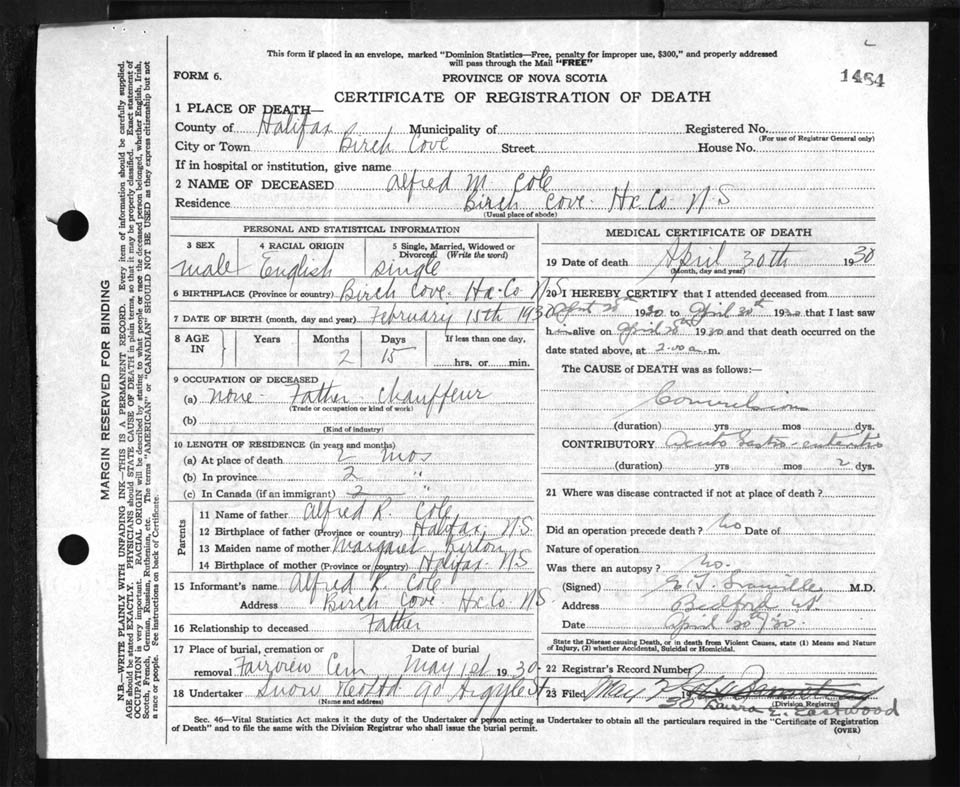 This form if placed in an envelope, marked "Dominion Statistics—Free, penalty for improper use, $300," and properly addressed
will pass through the Mail "FREE"
FORM 6.
PROVINCE OF NOVA SCOTIA
1464
CERTIFICATE OF REGISTRATION OF DEATH
1 PLACE OF DEATH—
County of Halifax Municipality of Registered No.
(For use of Registrar General only)
City or Town Birch Cove Street House No.
If in hospital or institution, give name
2 NAME OF DECEASED Alfred M. Cole
Residence Birch Cove. Hx Co N.S
(Usual place of abode)
PERSONAL AND STATISTICAL INFORMATION
3 SEX 4 RACIAL ORIGIN 5 Single, Married, Widowed or
Divorced. (Write the word)
male English single
6 BIRTHPLACE (Province or country) Birch Cove. Hx-Co N.S
7 DATE OF BIRTH (month, day and year) February 15th 1930
8 AGE IN Years Months Days If less than one day,
2 15 hrs. or min.
9 OCCUPATION OF DECEASED
(a) none - Father - Chauffeur
(Trade or occupation or kind of work)
(b)
(Kind of industry)
10 LENGTH OF RESIDENCE (in years and months)
(a) At place of death 2 mos
(b) In province 2 "
(c) In Canada (if an immigrant) 2 "
Parents
11 Name of father Alfred R. Cole
12 Birthplace of father (Province or country) Halifax. N.S.
13 Maiden name of mother Margaret Kirton
14 Birthplace of mother (Province or country) Halifax. N.S
15 Informant's name Alfred R. Cole
Address Birch Cove. Hx Co N.S.
16 Relationship to deceased Father
17 Place of burial, cremation or Date of burial
removal Fairview Cem May 1st 1930
18 Undertaker Snow &Co Ltd 90 Argyle St
(Name and address)
MEDICAL CERTIFICATE OF DEATH
19 Date of death April 30th 1930
(Month, day and year)
20 I HEREBY CERTIFY that I attended deceased from
April 1930 to April 30th 1930 that I last saw
h im alive on April 1930 and that death occurred on the
date stated above, at 2.00 a. m.
The CAUSE of DEATH was as follows:—
Convulsions
(duration) yrs mos dys.
CONTRIBUTORY Acute Gastro-enteritis
(duration) yrs mos 2 dys.
21 Where was disease contracted if not at place of death?
Did an operation precede death? No Date of
Nature of operation
Was there an autopsy? No.
(Signed) M.D.
Address Bedford
Date April 30th/30.
State the Disease causing Death, or in death from Violent Causes, state (1) Means and Nature
of Injury, (2) whether Accidental, Suicidal or Homicidal.
22 Registrar's Record Number
23 Filed May 1930
(Division Registrar)
Laura E. Eastwood
Sec. 46—Vital Statistics Act makes it the duty of the Undertaker or person acting as Undertaker to obtain all the particulars required in the "Certificate of Registration
of Death" and to file the same with the Division Registrar who shall issue the burial permit.
(OVER)
MARGIN RESERVED FOR BINDING
N.B.—WRITE PLAINLY WITH UNFADING INK—THIS IS A PERMANENT RECORD. Every item of information should be carefully supplied.
AGE should be stated EXACTLY. PHYSICIANS should STATE CAUSE OF DEATH in plain terms, so that it may be properly classified. Exact statement of
OCCUPATION is very important. RACIAL ORIGIN will be described by stating to what people or race the deceased person belonged, whether English, Irish,
Scotch, French, German, Russian, Ruthenian, etc. The terms "AMERICAN" or "CANADIAN" SHOULD NOT BE USED as they express citizenship but not
a race or people. See instructions on back of Certificate.